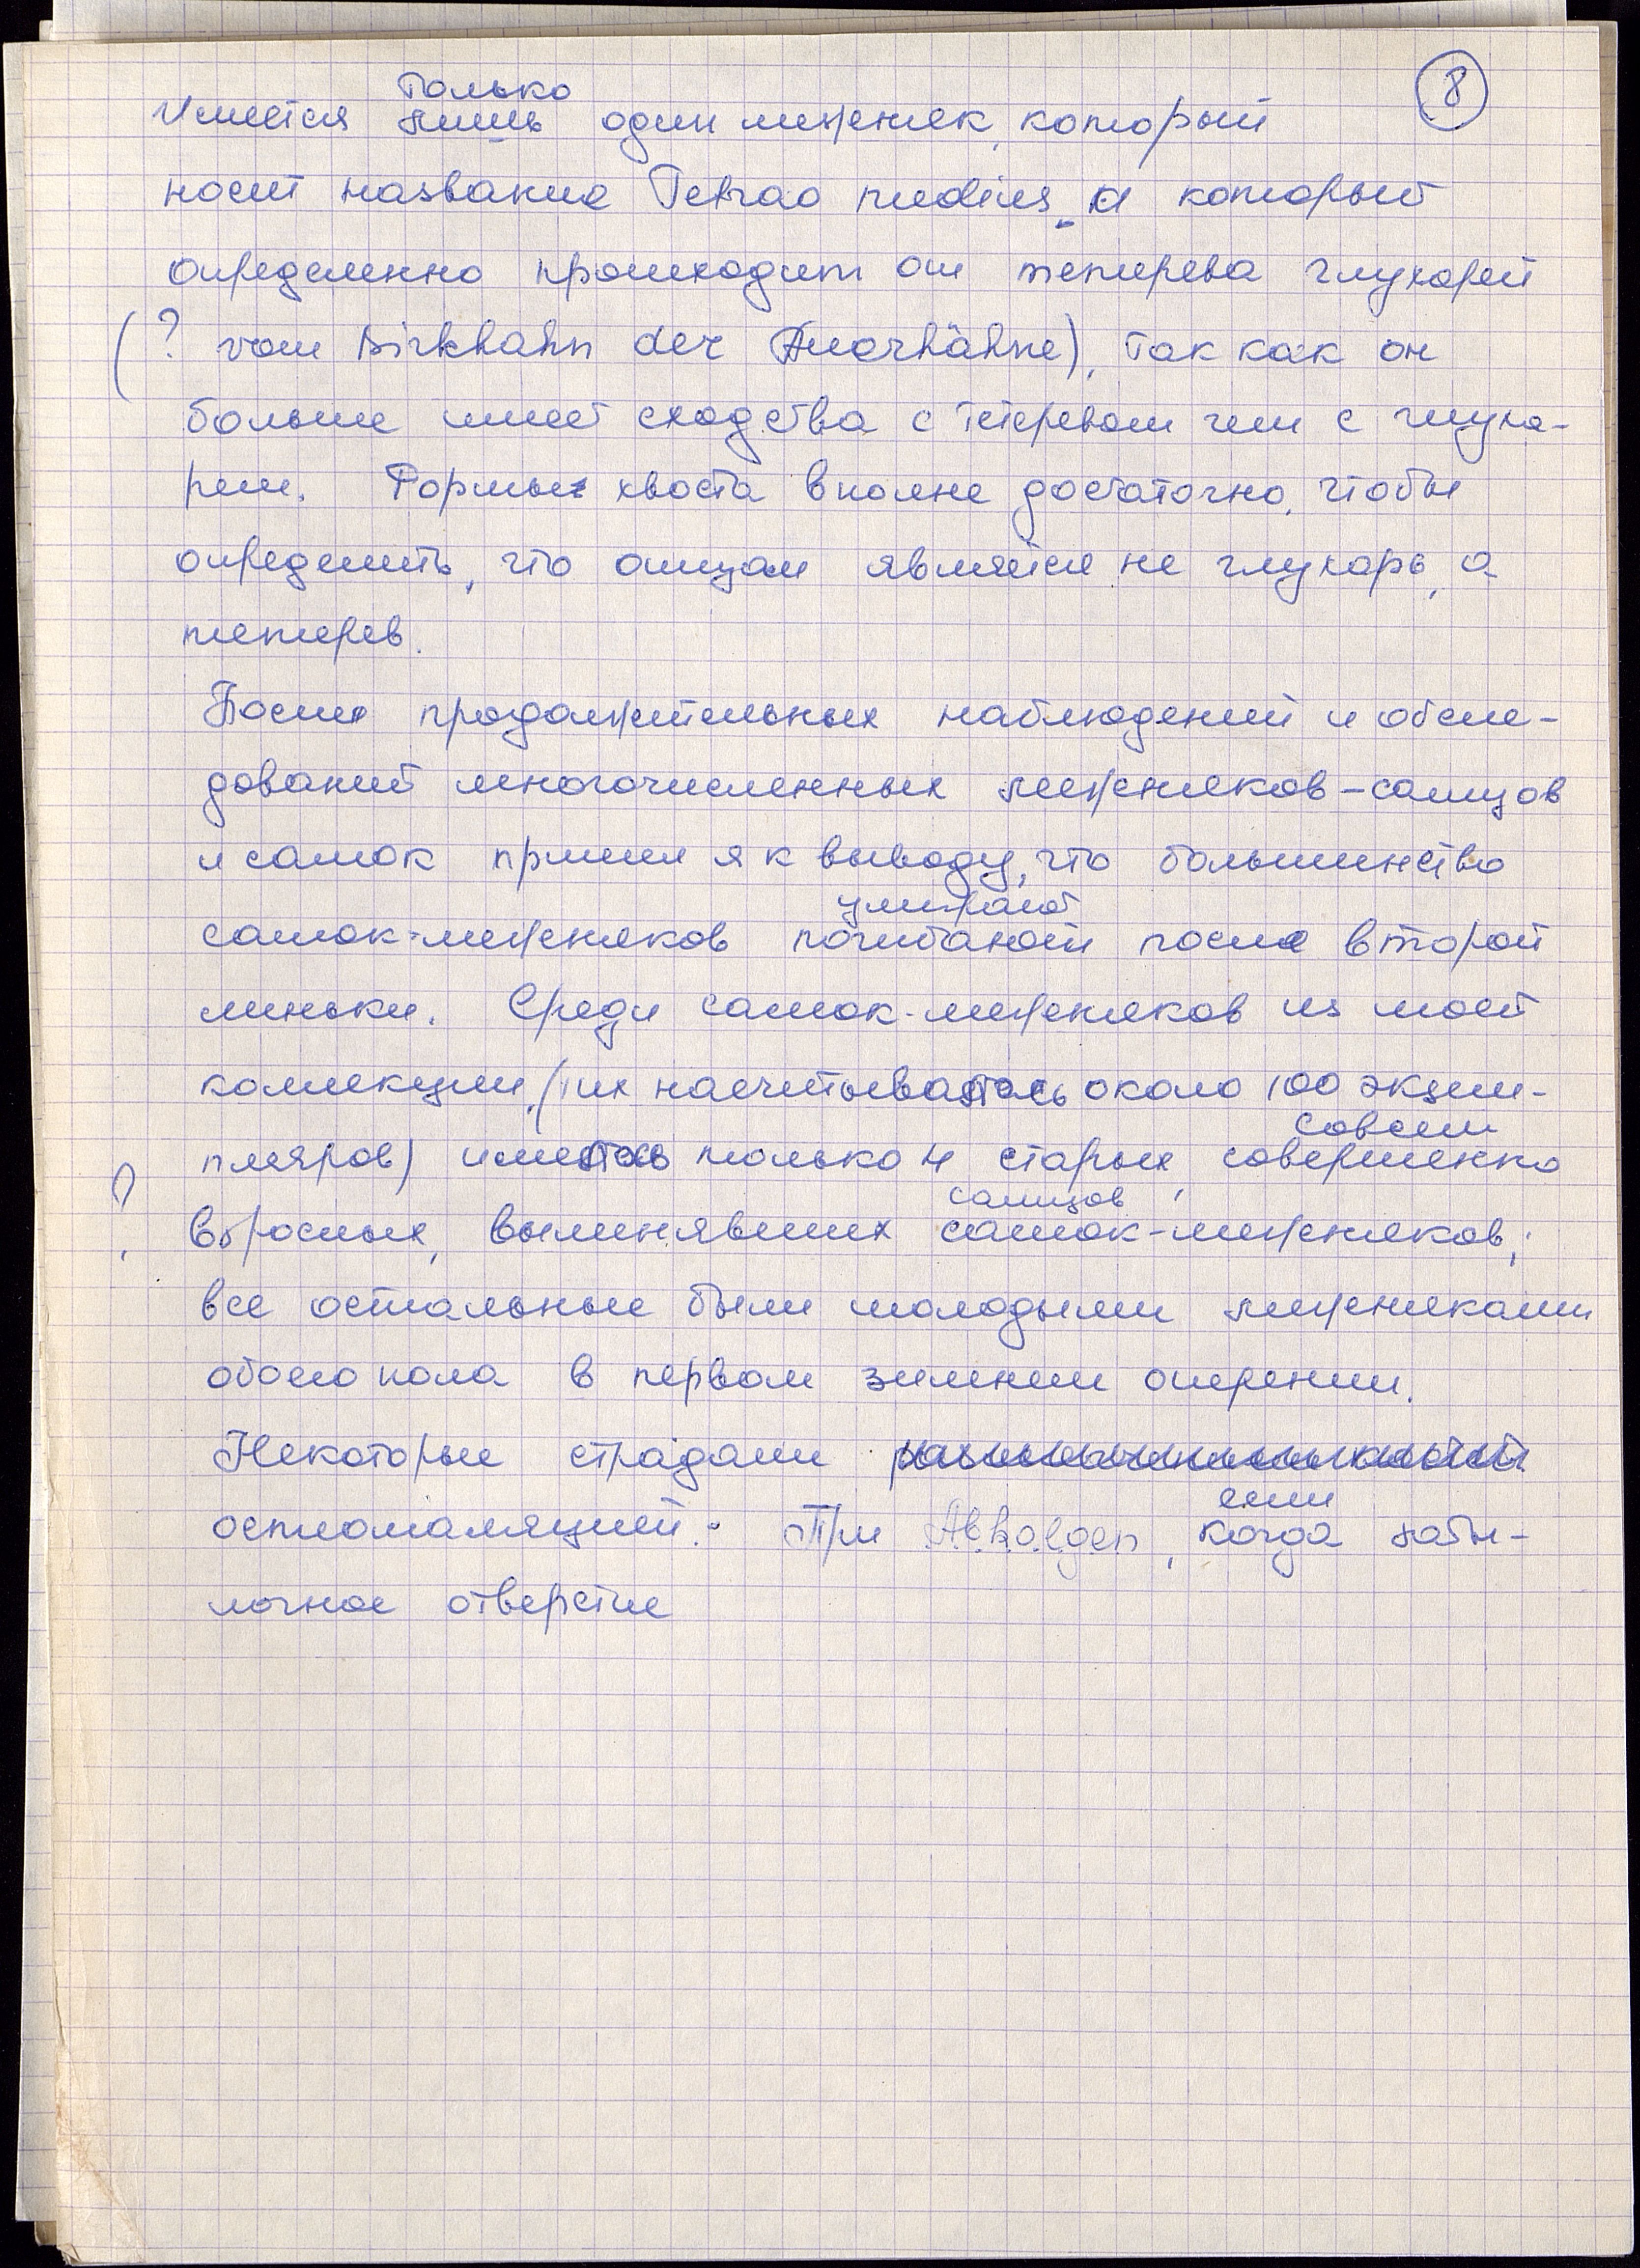 8
только
Имеется лишь один межняк, который
носит название Tetrao medius и который
определенно происходит от тетерева глухарей
(? vom Birkhahn der Auerhähne), так как он
больше имеет сходства с тетеревом чем с глуха-
рем. Формы хвоста вполне достаточно, чтобы
определить, что отцом является не глухарь, а
тетерев.
После продолжительных наблюдений и обсле-
дований многочисленных межняков-самцов
и самок пришел я к выводу, что большинство
умирают
самок-межняков погибают после второй
линьки. Среди самок-межняков из моей
коллекции, (их насчитывалось около 100 экзем-
совсем
пляров) имелось только 4 старых, совершенно
самцов
? взрослых, вылинявших самок-межняков;
все остальные были молодыми межняками
обоего пола в первом зимнем оперении.
Некоторые страдали
остеомаляцией. При Abbalgen,
если
когда заты-
лочное отверстие